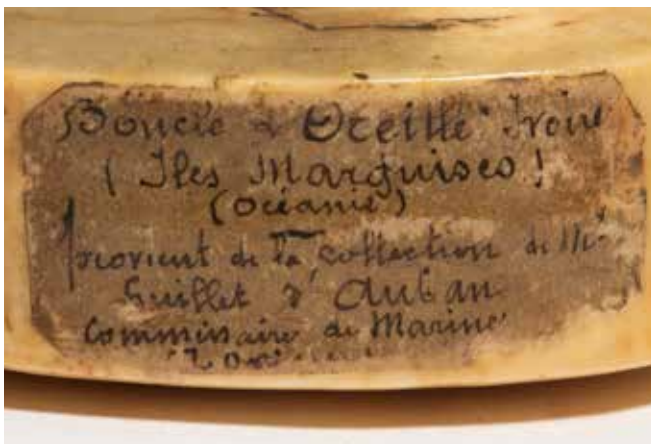 Boucle d'Oreille Ivoire
( Iles Marquises )
(Océanie)
provient de la collection de Mr
Guillet d'Auban
Commissaire de Marine